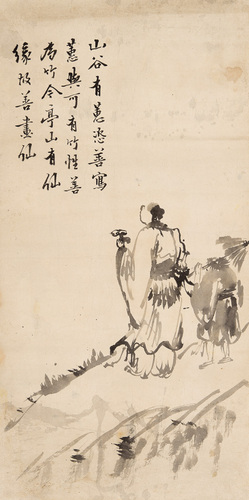 山谷有蕙恣善寫
蕙與可有竹性善
為竹今亭山有仙
緣故善畫仙